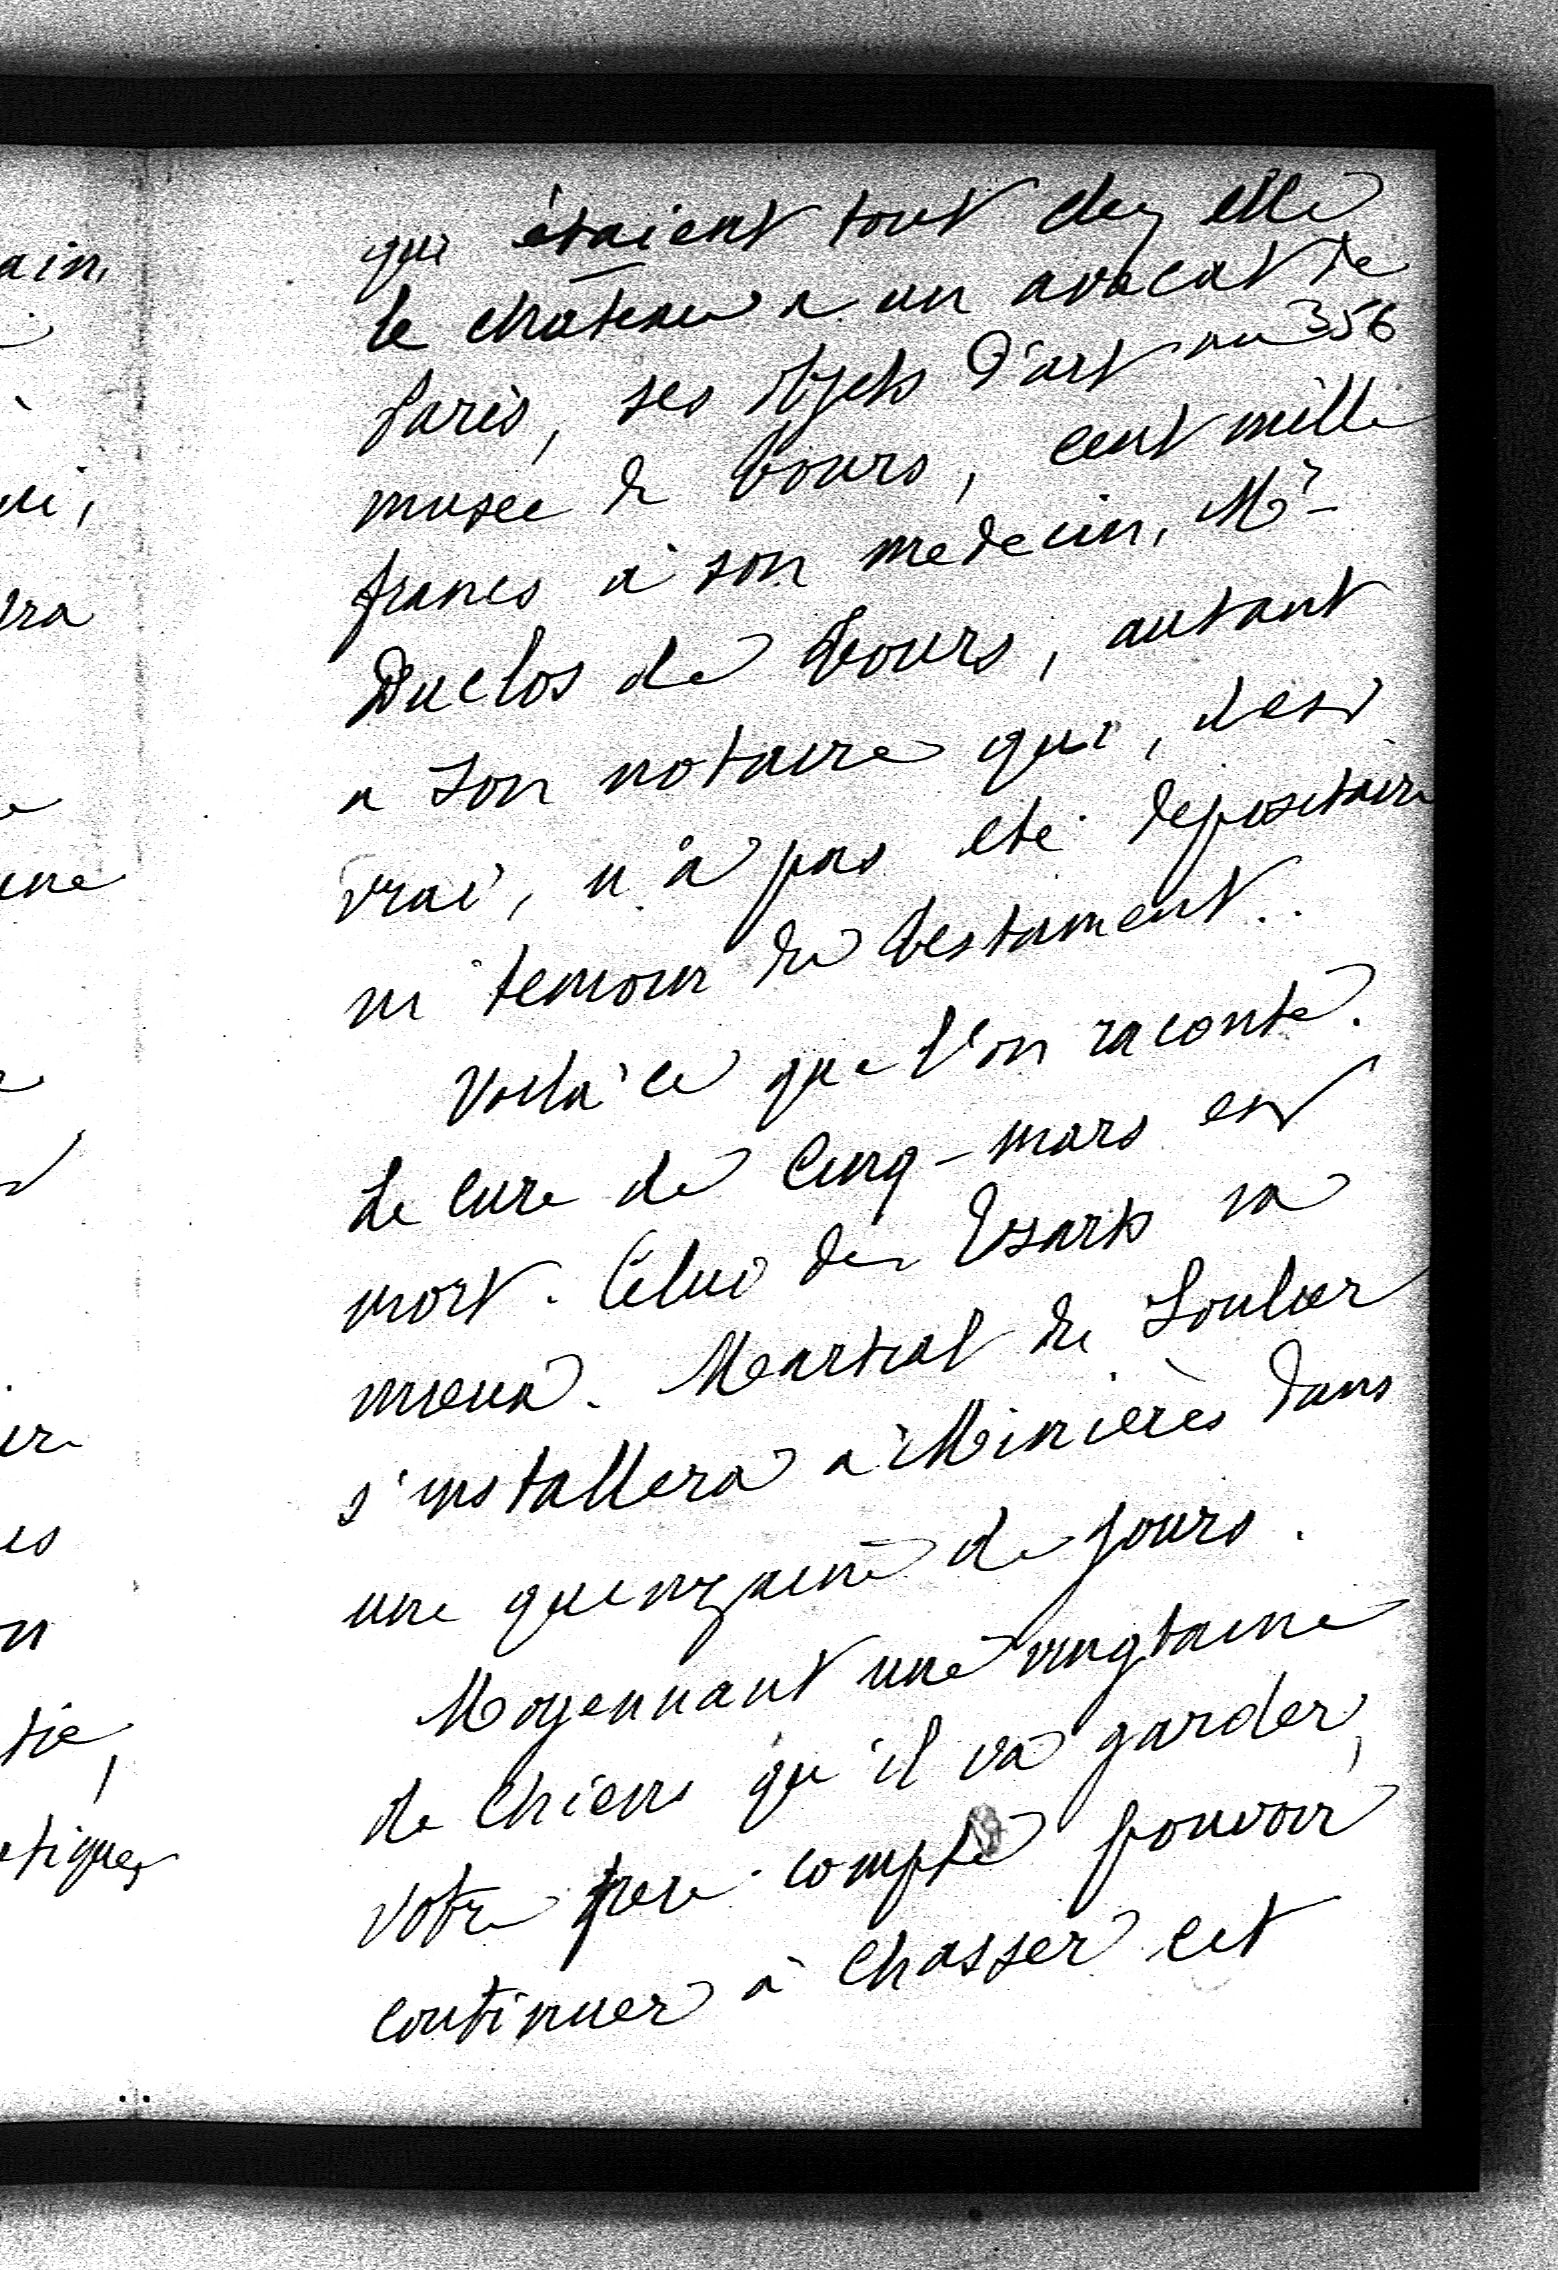 qui étaient tout chez elle
le château a un avocat de
Paris, ses objets d'art au 356
musée de Tours, cent mille
francs à son medecin, Mr
Duclos de Tours, autant
a son notaire qui, il est
vrai, n'a pas été depositaire
ni temoin du testament..
Voilà ce que l'on raconte.
Le cure de Cinq-mars est
mort. Celui des Essarts va
mieux. Martial du Soulier
s'installera a Minières dans
une quinzaine de jours.
Moyennant une vingtaine
de chiens qu'il va garder,
votre pere compte pouvoir
continuer à chasser cet